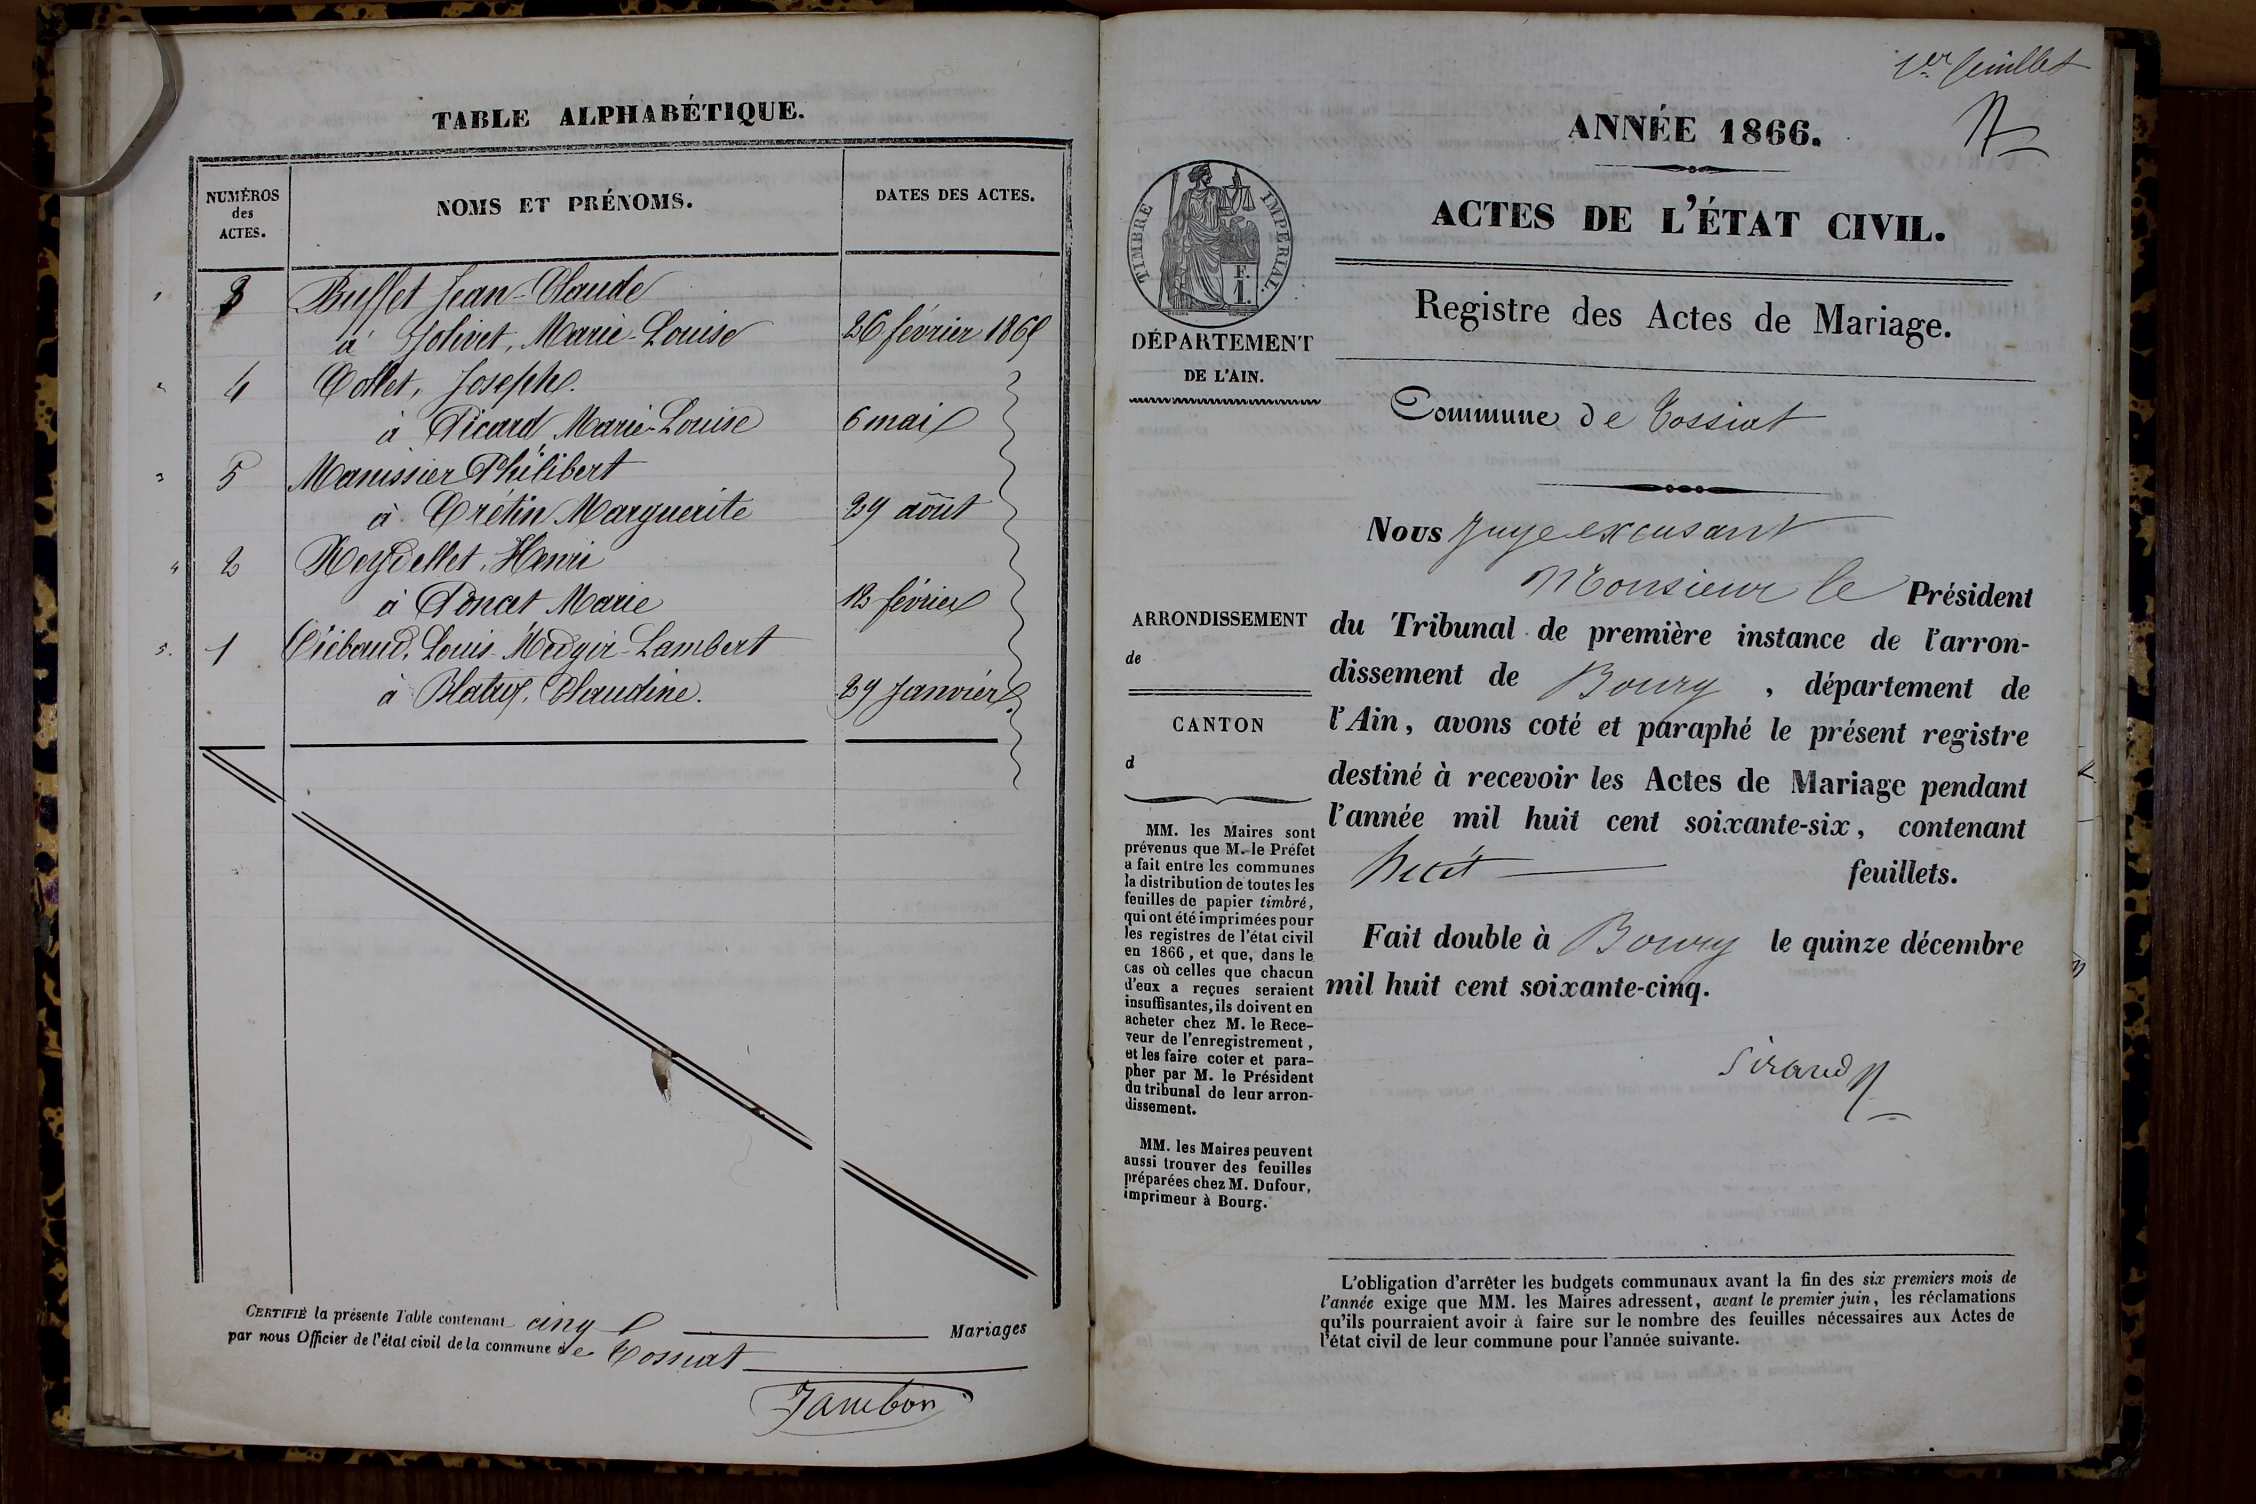 TABLE ALPHABÉTIQUE.
NUMÉROS des ACTES.
NOMS ET PRÉNOMS.
DATES DES ACTES.
1 3 Buffet Jean-Claude
à Jolivet, Marie-Louise 26 février 1865
2 4 Collet, Joseph.
à Picard Marie-Louise 6 mai
3 5 Manissier Philibert
à Crétin Marguerite 29 août
4 2 Reydellet, Henri
à Poncet Marie 12 février
5. 1 Louis Lambert
à Claudine. 29 Janvier
CERTIFIÉ la présente Table contenant cinq Mariages
par nous Officier de l'état civil de la commune de Tossiat
Jambon
1er feuillet
ANNÉE 1866.
ACTES DE L'ÉTAT CIVIL.
TIMBRE IMPÉRIAL.
F.
1.
DÉPARTEMENT
DE L'AIN.
Registre des Actes de Mariage.
Commune de Tossiat
Nous Juge excusant
Monsieur le Président
du Tribunal de première instance de l'arron-
dissement de Bourg, département de
l'Ain, avons coté et paraphé le présent registre
destiné à recevoir les Actes de Mariage pendant
l'année mil huit cent soixante-six, contenant
huit feuillets.
Fait double à Bourg le quinze décembre
mil huit cent soixante-cinq.
Siraud
ARRONDISSEMENT
de
CANTON
d
MM. les Maires sont
prévenus que M. le Préfet
a fait entre les communes
la distribution de toutes les
feuilles de papier timbré,
qui ont été imprimées pour
les registres de l'état civil
en 1866, et que, dans le
cas où celles que chacun
d'eux a reçues seraient
insuffisantes, ils doivent en
acheter chez M. le Rece-
veur de l'enregistrement,
et les faire coter et para-
pher par M. le Président
du tribunal de leur arron-
dissement.
MM. les Maires peuvent
aussi trouver des feuilles
préparées chez M. Dufour,
imprimeur à Bourg.
L'obligation d'arrêter les budgets communaux avant la fin des six premiers mois de
l'année exige que MM. les Maires adressent, avant le premier juin, les réclamations
qu'ils pourraient avoir à faire sur le nombre des feuilles nécessaires aux Actes de
l'état civil de leur commune pour l'année suivante.